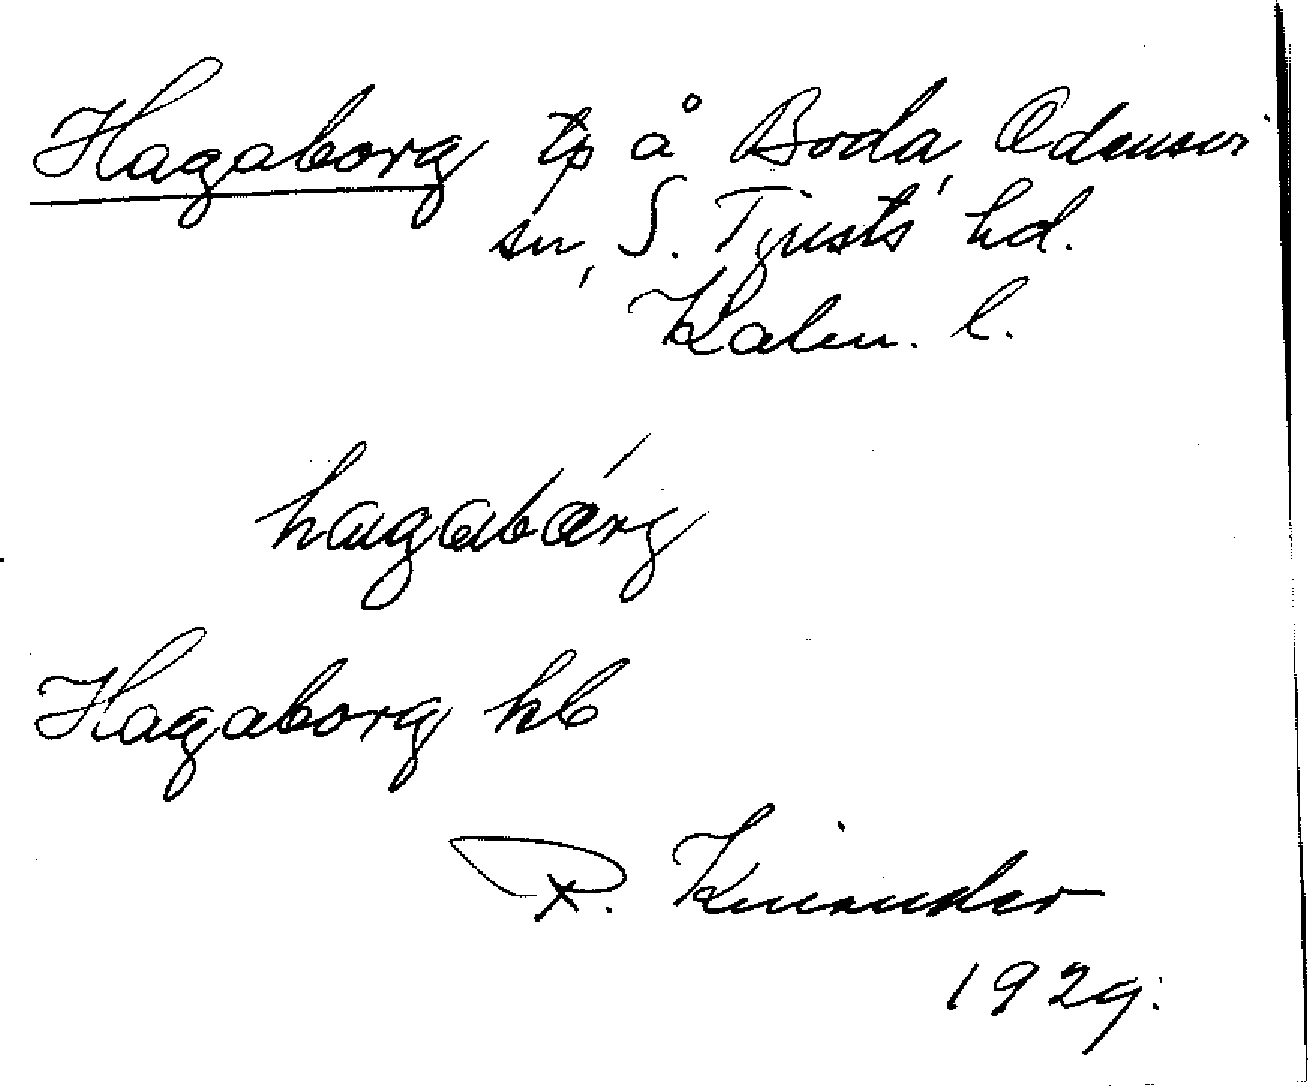 Hagaborg tp å Boda, Odensvi
sn, S. Tjusts hd.
Kalm. l.
hagabårg
Hagaborg hb
R. Kinander
1929.